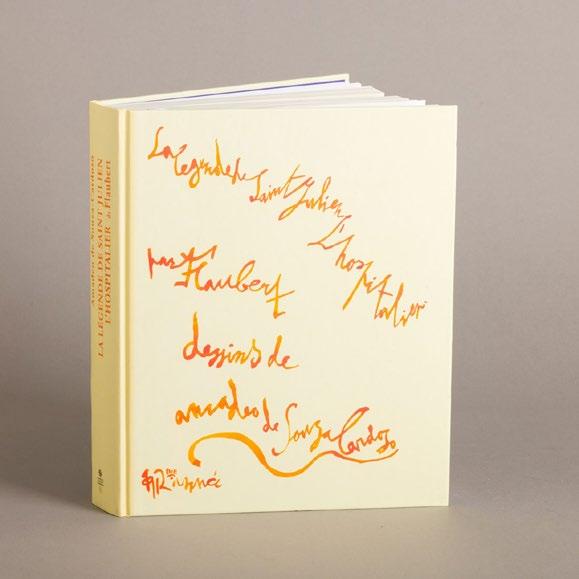 La légende de
Saint Julien
L'hospitalier
par Flaubert
dessins de
amadeo de Souza Cardozo
Amadeo de Souza-Cardoso
LA LÉGENDE DE SAINT JULIEN
L'HOSPITALIER de Flaubert